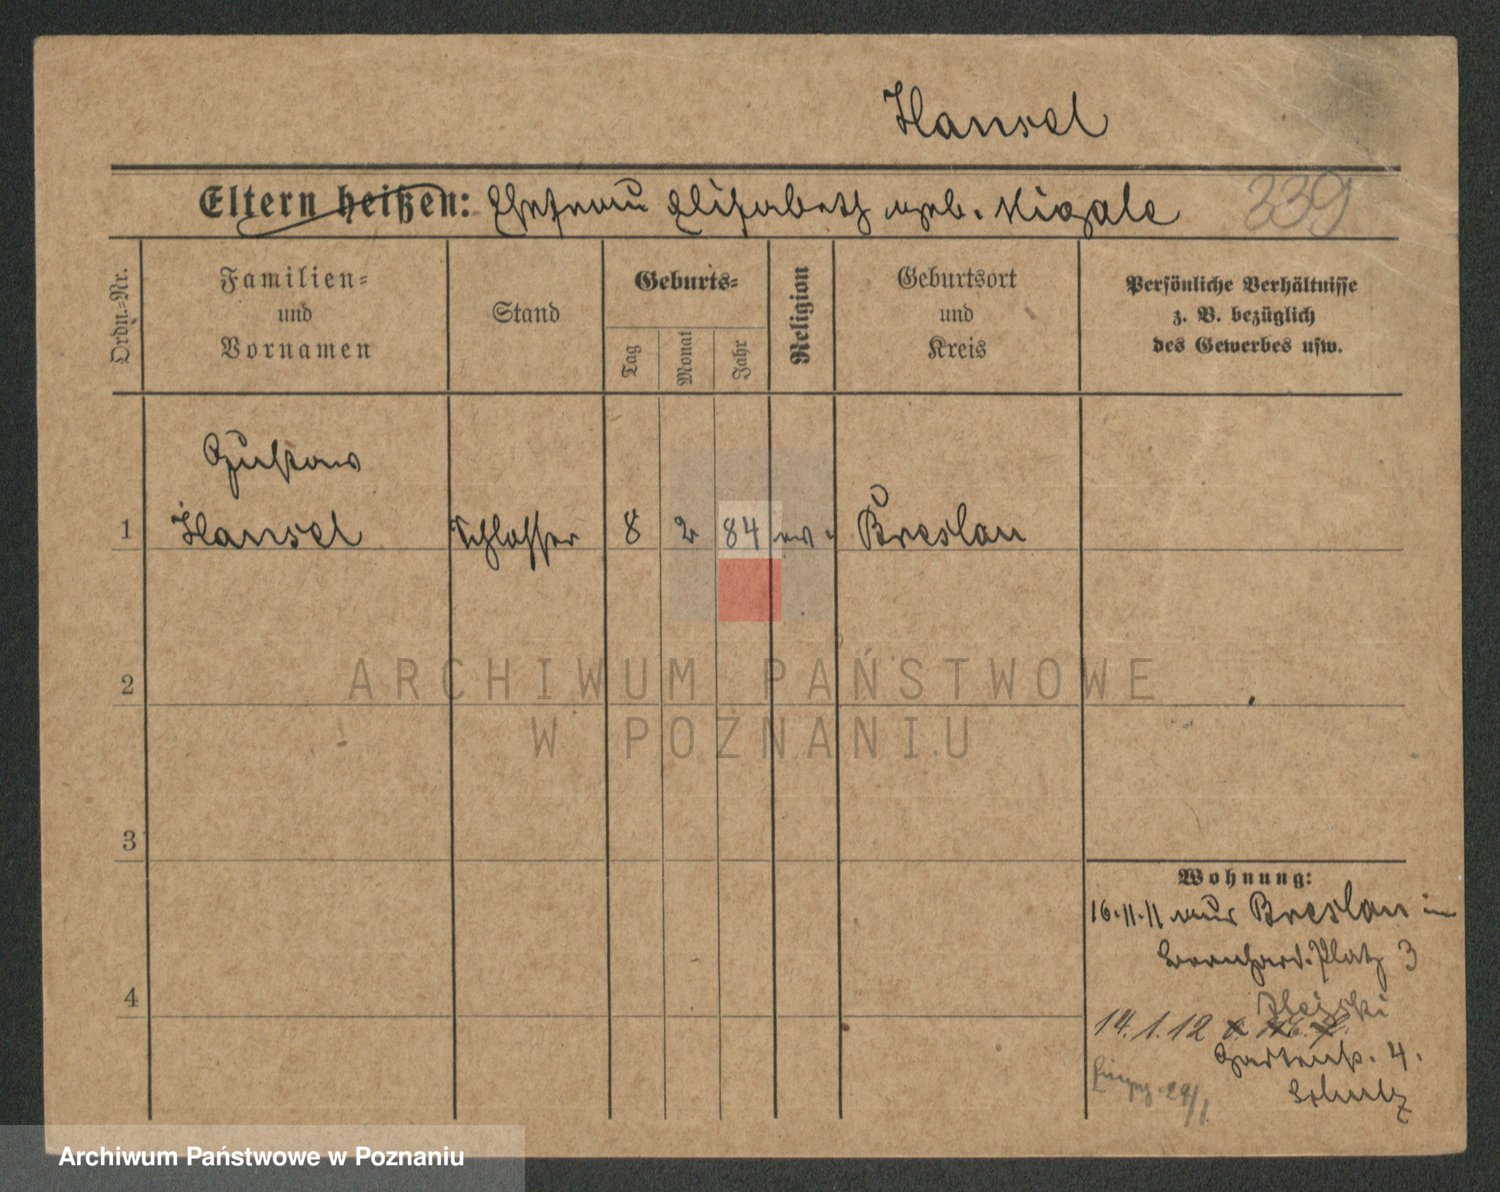 Hansel
Eltern heißen: Ehefrau Elisabeth geb. Migale
339
Ordn.-Nr.
Familien-
und
Vornamen
Stand
Geburts-
Tag
Monat
Jahr
Religion
Geburtsort
und
Kreis
Persönliche Verhältnisse
z. B. bezüglich
des Gewerbes usw.
Gustav
1 Hansel Schlosser 8 2 84 ev. Breslau
2
ARCHIWUM PAŃSTWOWE
W POZNANIU
3
4
Wohnung:
16.11.11 Breslau
Bernhard. Platz 3
14.1.12
Gartenstr. 4.
Schulz
29/1.
Archiwum Państwowe w Poznaniu